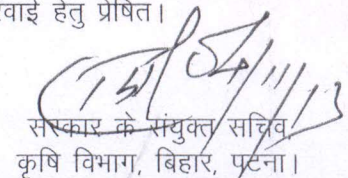 रवाई हेतु प्रेषित।
04/11/13
सरकार के संयुक्त सचिव,
कृषि विभाग, बिहार, पटना।